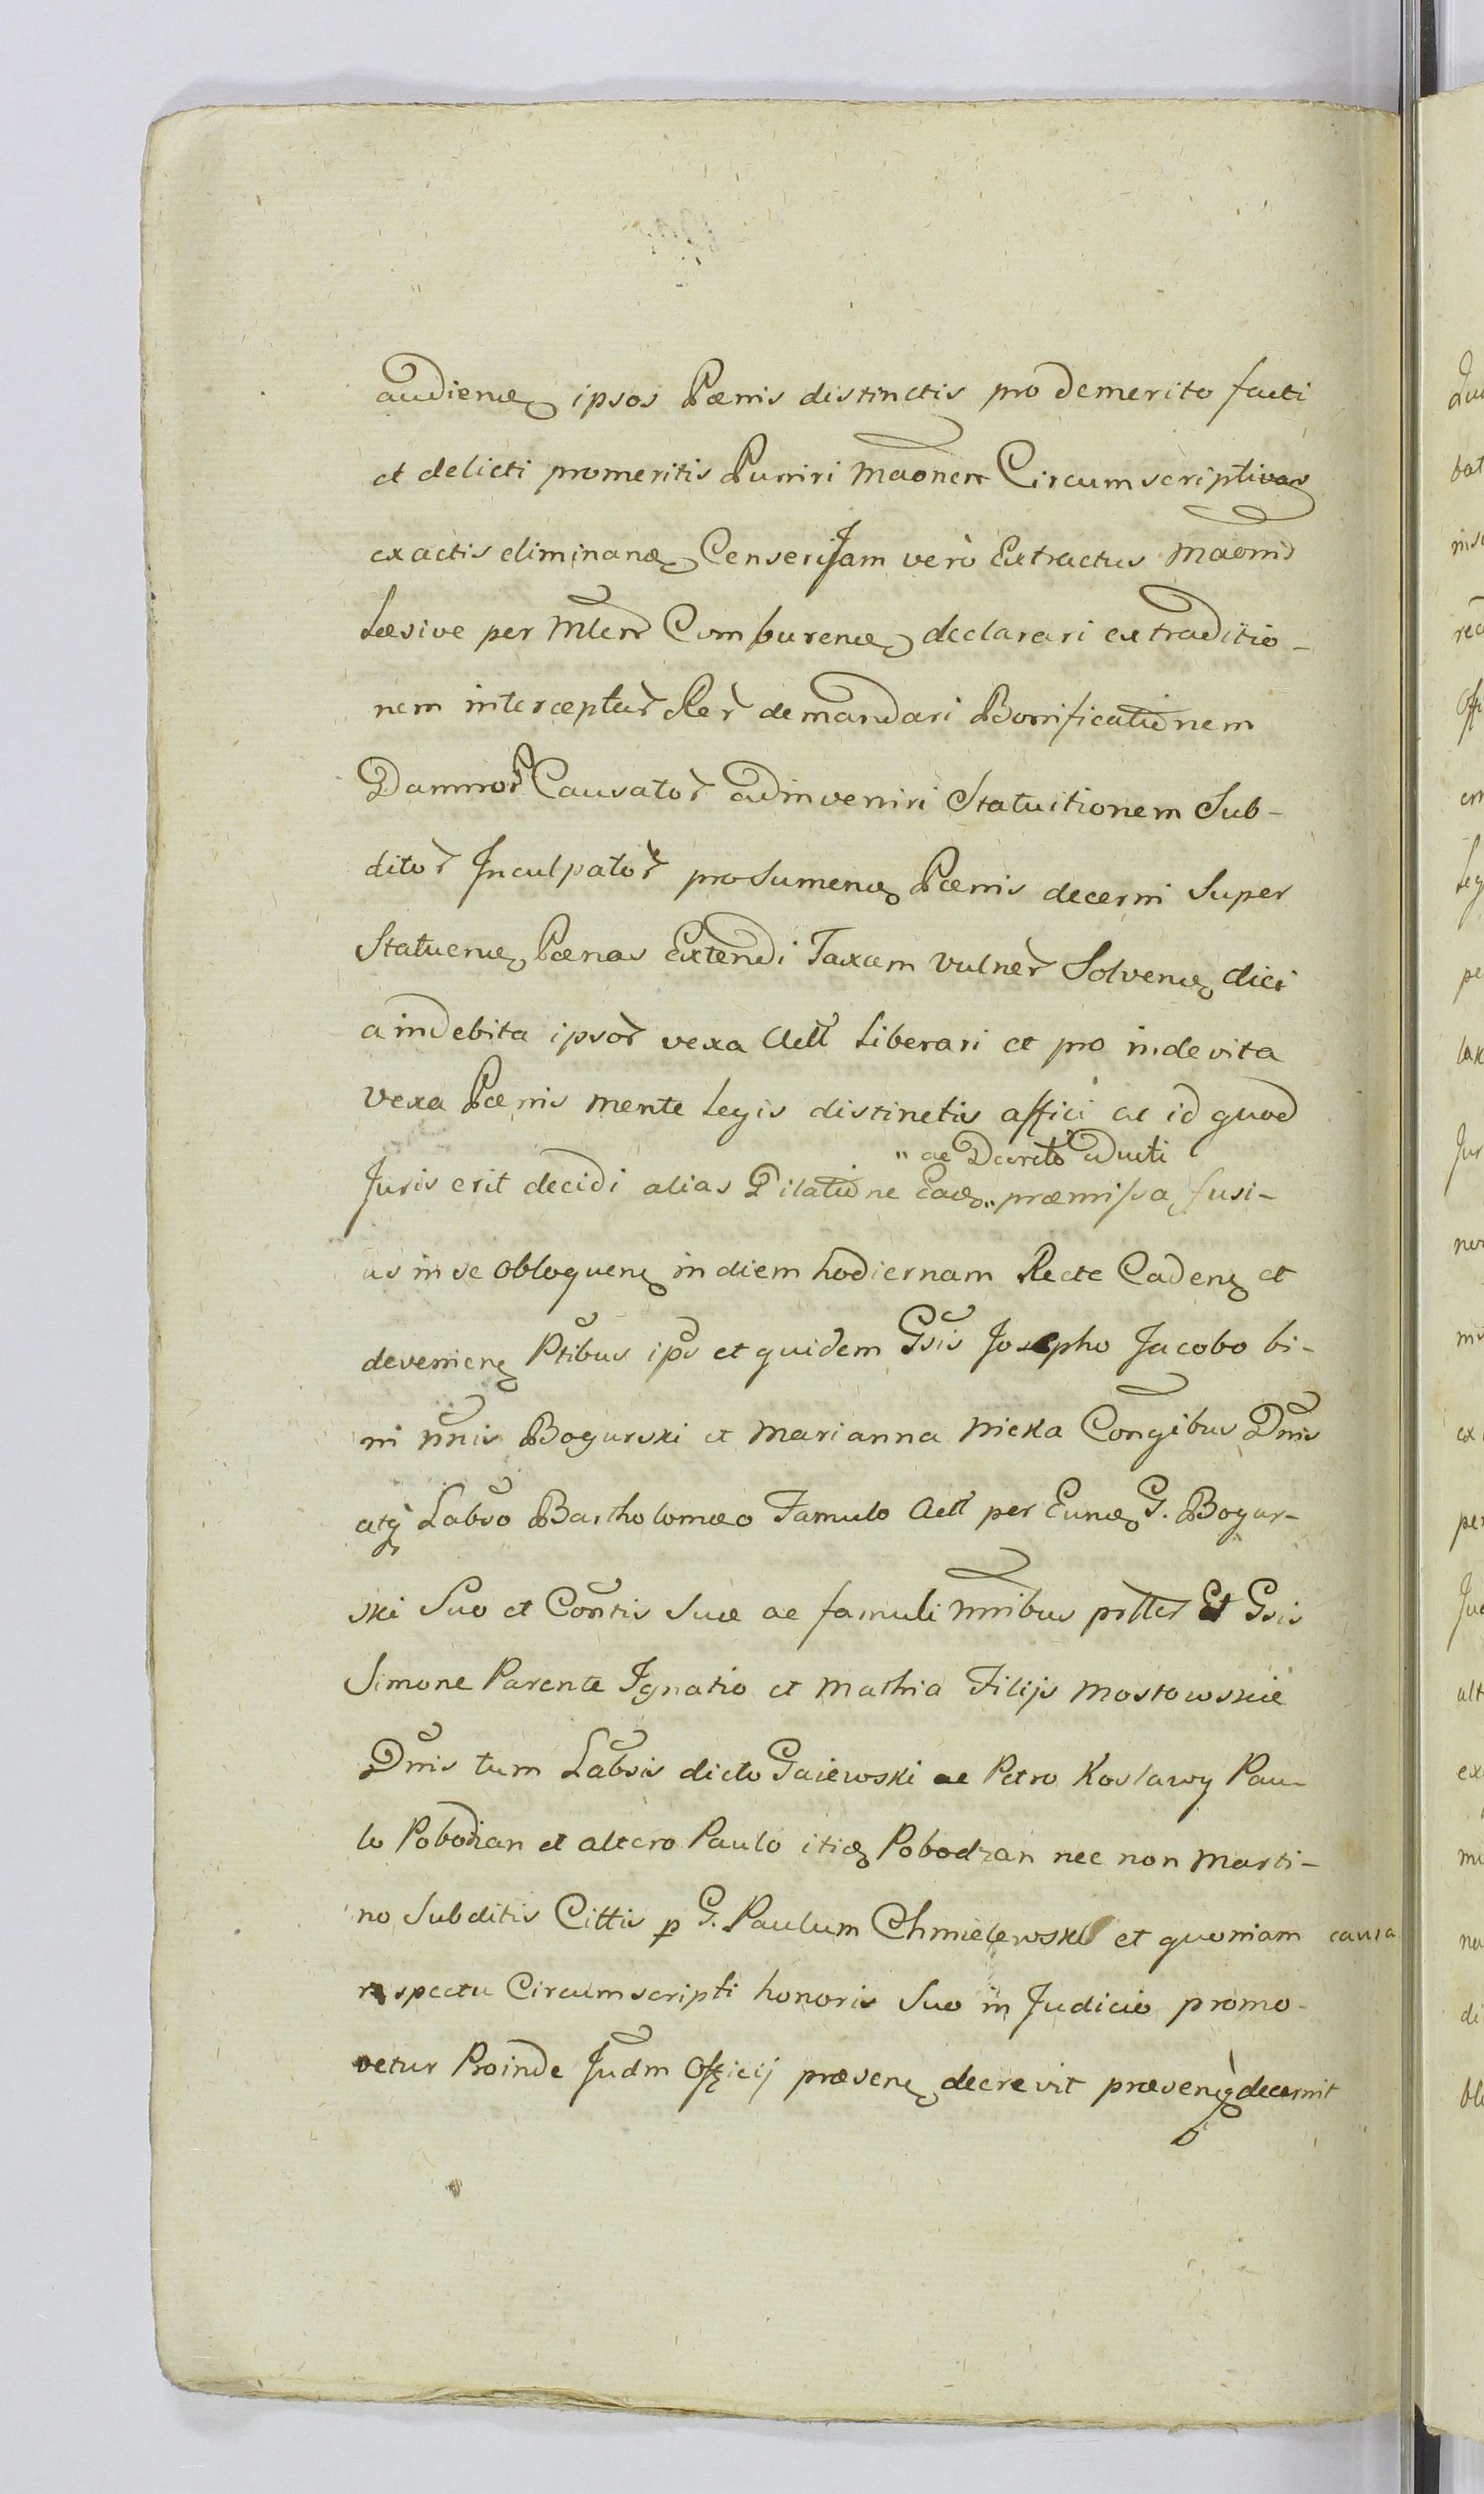 audiend ipsos Pænis distinctis pro demerito facti
et delicti promeritis Puniri Maonem Circumscriptivas
ex actis eliminand Censeri Jam verò Extractus Maonis
Læsivæ per Mlem Comburend declarari extraditio-
nem interceptar Rer demandari Bonificationem
Damnor Causator adinveniri Statuitionem Sub-
ditor Inculpator pro Sumend Pænis decerni Super
Statuend Pænas Extendi Taxam Vulner Solvend dici
a indebita ipsor vexa Actt Liberari et pro indevita
vexa Pænis mente Legis distinctis affici ac id quod
" ac Decreto aducti
Juris erit decidi alias Dilatione Ead " præmissa fusi-
us in se obloquen in diem hodiernam Recte Caden et
devenien Ptibus ips et quidem Gsis Josepho Jacobo bi-
ni nnis Bogurski et Marianna Nicka Congibus Dnis
atq Labso Bartholomæo Famulo Actt per Eund G. Bogur-
ski Suo et Contis Suæ ac famuli nnibus pntter Et Gsis
Simone Parente Ignatio et Mathia Filijs Mostowskie
Dnis tum Labsis dicto Gaiewski ac Petro Koslawy Pau-
lo Pobodzan et altero Paulo itid Pobodzan nec non Marti-
no Subditis Cittis p G. Paulum Chmielewski et quoniam causa
respectu Circumscripti honoris Suo in Judicio promo-
vetur Proinde Judm Officij præsens decrevit præsensq decernit